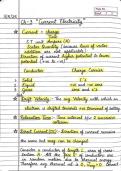 Ch-3 "Current Electricity"
Current = charge
time
S.I unit Ampere (A)
Scalar Quantity (because laws of vector
addition are not applicable)
Direction of current higher potential to lower
potential (+ve to -ve)
Conductor Charge Carrier
Solid e⁻s
Liquid +ve and -ve ions
Gases ions and e⁻s
Drift Velocity: The Avg Velocity with which
are drifted towards +ve terminal of battery
Relaxation Time: Time interval b/w 2 successive
different collisions.
Direct Current (DC): Direction of current remains
the same but mag can be changed
Consider a conductor of length l, area of cross-
section A. All the free e⁻s of conductor are
in random motion due to thermal Energy